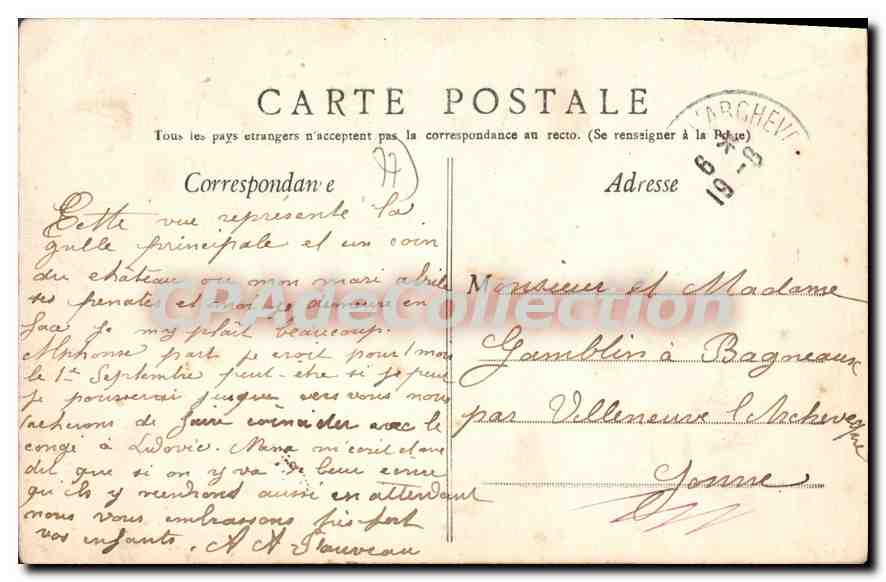 CARTE POSTALE
Tous les pays etrangers n'acceptent pas la correspondance au recto. (Se renseigner à la Poste)
Correspondance
77
Cette vue représente la
gulle principale et un coin
du château ou mon mari abrite
ses penates et moi je demeure en
face je my plait beaucoup.
Alphonse part je croit pour 1 mois
le 1er Septembre peut-etre si je peux
je pousserai jusque vers vous nous
tacherons de faire coincider avec le
congé à Ludovic. Nana m'ecrit et me
dit que si on y va de leur ecrire
qu'ils y viendront aussi en attendant
nous vous embrassons très fort
vos enfants. A A Fauveau
Adresse
Monsieur et Madame
Gamblin à Bagneaux
par Villeneuve l'Archeveque
Yonne
L'ARCHEV
6 - 8
19
CPAdeCollection